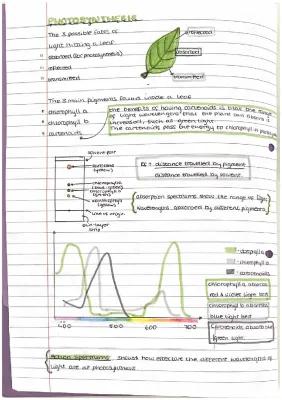 PHOTOSYNTHESIS
The 3 possible fates of
light hitting a leaf:
absorbed (for photosynthesis)
reflected
transmitted
reflected
absorbed
transmitted
The 3 main pigments found inside a leaf
chlorophyll a
chlorophyll b
carotenoids
The benefits of having carotenoids is that the range
of light wavelengths that the plant can absorb is
increased, such as green light.
The carotenoids pass the energy to chlorophyll in
solvent front
carotene
(yellow)
chlorophyll a
chlorophyll b
xanthophyll
line of origin
thin-layer
strip
Rf = distance travelled by pigment
distance travelled by solvent
absorption spectrums show the range of light
wavelengths absorbed by different pigments
400
500
600
700
chlorophyll a
chlorophyll b
carotenoids
chlorophyll a absorbs
red & violet light best
chlorophyll b absorbs
blue light best
carotenoids absorb
green light
Action spectrums shows how effective the different wavelengths of
light are at photosynthesis